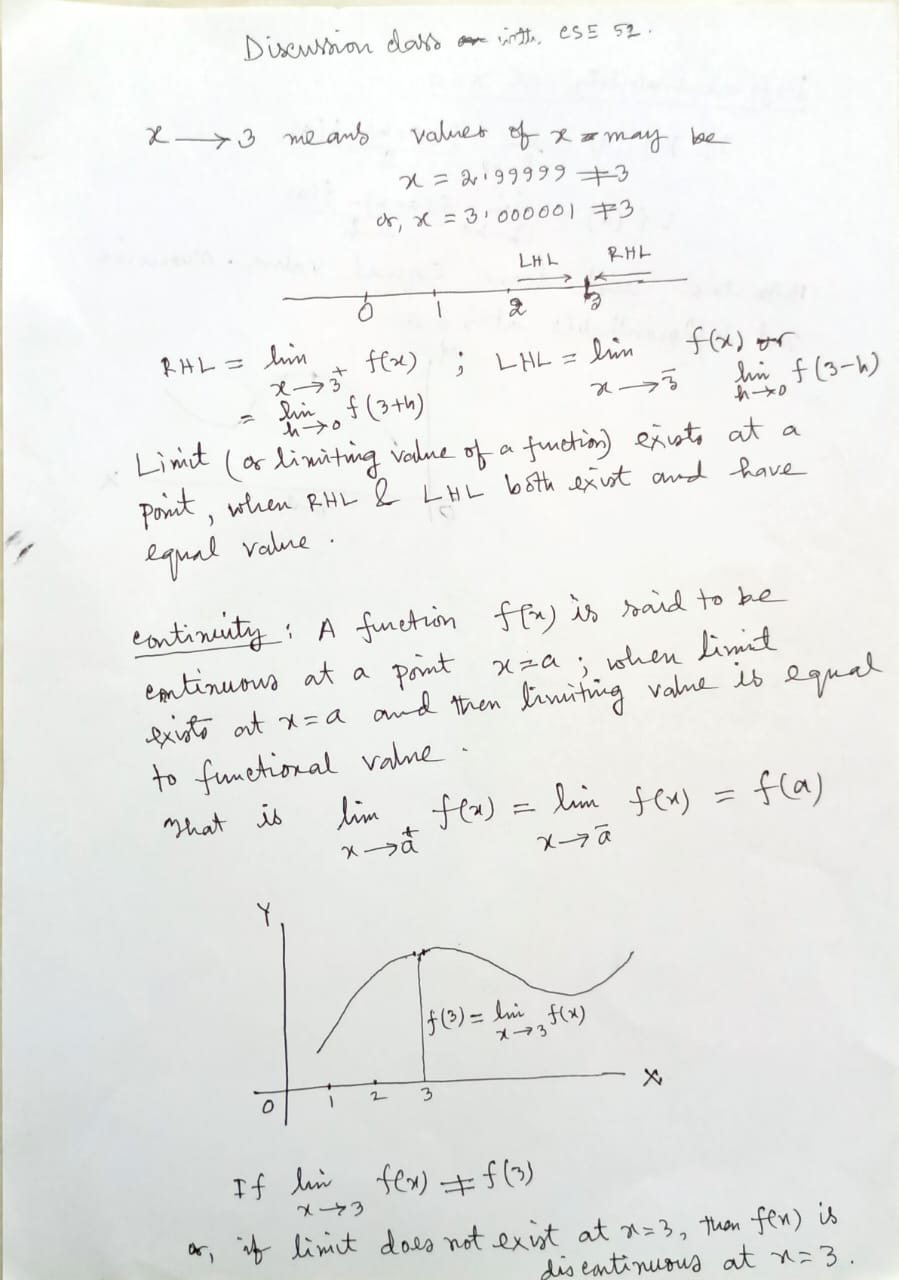 Discussion class with CSE 52.
x → 3 means values of x may be
x = 2.99999 ≠ 3
or, x = 3.000001 ≠ 3
LHL RHL
0 1 2 3
RHL = lim x→3⁺ f(x) ; LHL = lim x→3⁻ f(x) or
= lim h→0 f(3+h) lim h→0 f(3-h)
Limit (or limiting value of a function) exists at a
point, when RHL & LHL both exist and have
equal value.
continuity : A function f(x) is said to be
continuous at a point x=a ; when limit
exists at x=a and then limiting value is equal
to functional value.
That is lim x→a⁺ f(x) = lim x→a⁻ f(x) = f(a)
Y
f(3) = lim x→3 f(x)
X
0 1 2 3
If lim x→3 f(x) ≠ f(3)
or, if limit does not exist at x=3, then f(x) is
discontinuous at x=3.